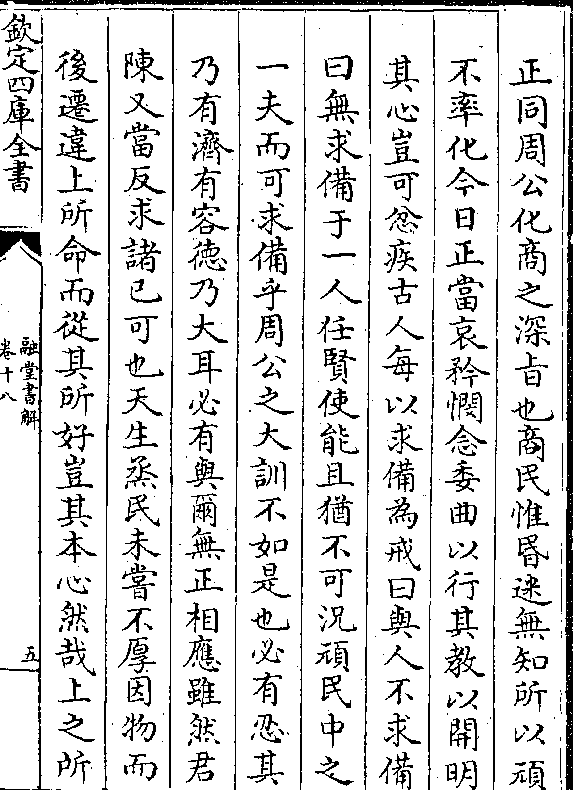 正同周公化商之深旨也商民惟昬迷無知所以頑
不率化今日正當哀矜憫念委曲以行其教以開明
其心豈可忿疾古人每以求備為戒曰與人不求備
曰無求備于一人任賢使能且猶不可況頑民中之
一夫而可求備乎周公之大訓不如是也必有忍其
乃有濟有容德乃大耳必有與爾無正相應雖然君
陳又當反求諸已可也天生烝民未嘗不厚因物而
後遷違上所命而從其所好豈其本心然哉上之所
欽定四庫全書
融堂書解
卷十八
五